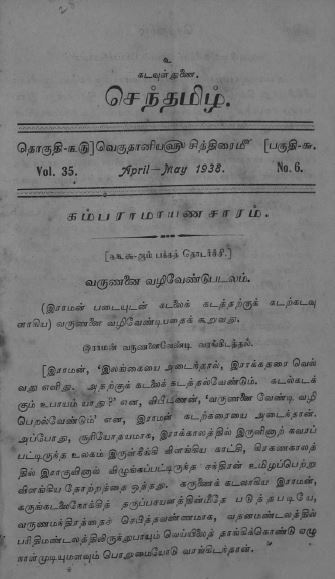 உ
கடவுள் துணை.
செந்தமிழ்.
தொகுதி-௩௫] வெகுதானியவுௗ சித்திரைமீ [பகுதி-௬.
Vol. 35. April—May 1938. No. 6.
கம்பராமாயணசாரம்.
பக்கத் தொடர்ச்சி.]
வருணனை வழிவேண்டுபடலம்.
(இராமன் படையுடன் கடலைக் கடத்தற்குக் கடற்கடவு
ளாகிய) வருணனை வழிவேண்டியதைக் கூறுவது.
இராமன் வருணனைவேண்டி வரங்கிடத்தல்.
[இராமன், ‘இலங்கையை அடைந்தால், இராக்கதரை வெல்
வது எளிது. அதற்குக் கடலைக் கடத்தல்வேண்டும். கடல்கடக்
கும் உபாயம் யாது?’ என, விபீடணன், ‘வருணனை வேண்டி வழி
பெறல்வேண்டும்’ என, இராமன் கடற்கரையை அடைந்தான்.
அப்போது, சூரியோதயமாக, இராக்காலத்தில் இருளினாற் கவரப்
பட்டிருந்த உலகம் இருள்நீங்கி விளங்கிய காட்சி, கிரகணகாலத்
தில் இராகுவினால் விழுங்கப்பட்டிருந்த சந்திரன் உமிழப்பெற்று
விளங்கிய தோற்றத்தை ஒத்தது. கருணைக் கடலாகிய இராமன்,
கருங்கடலைநோக்கித் தருப்பசயனத்தின்மீதே படுத்தபடியே,
வருணமந்திரத்தைச் செபித்தவண்ணமாக, வதனமண்டலத்தில்
பரிதிமண்டலத்திலிருந்துபாயும் வெயிலைத் தாங்கிக்கொண்டு ஏழு
நாள்முடியுமளவும் பொறுமையோடு வரங்கிடந்தான்.